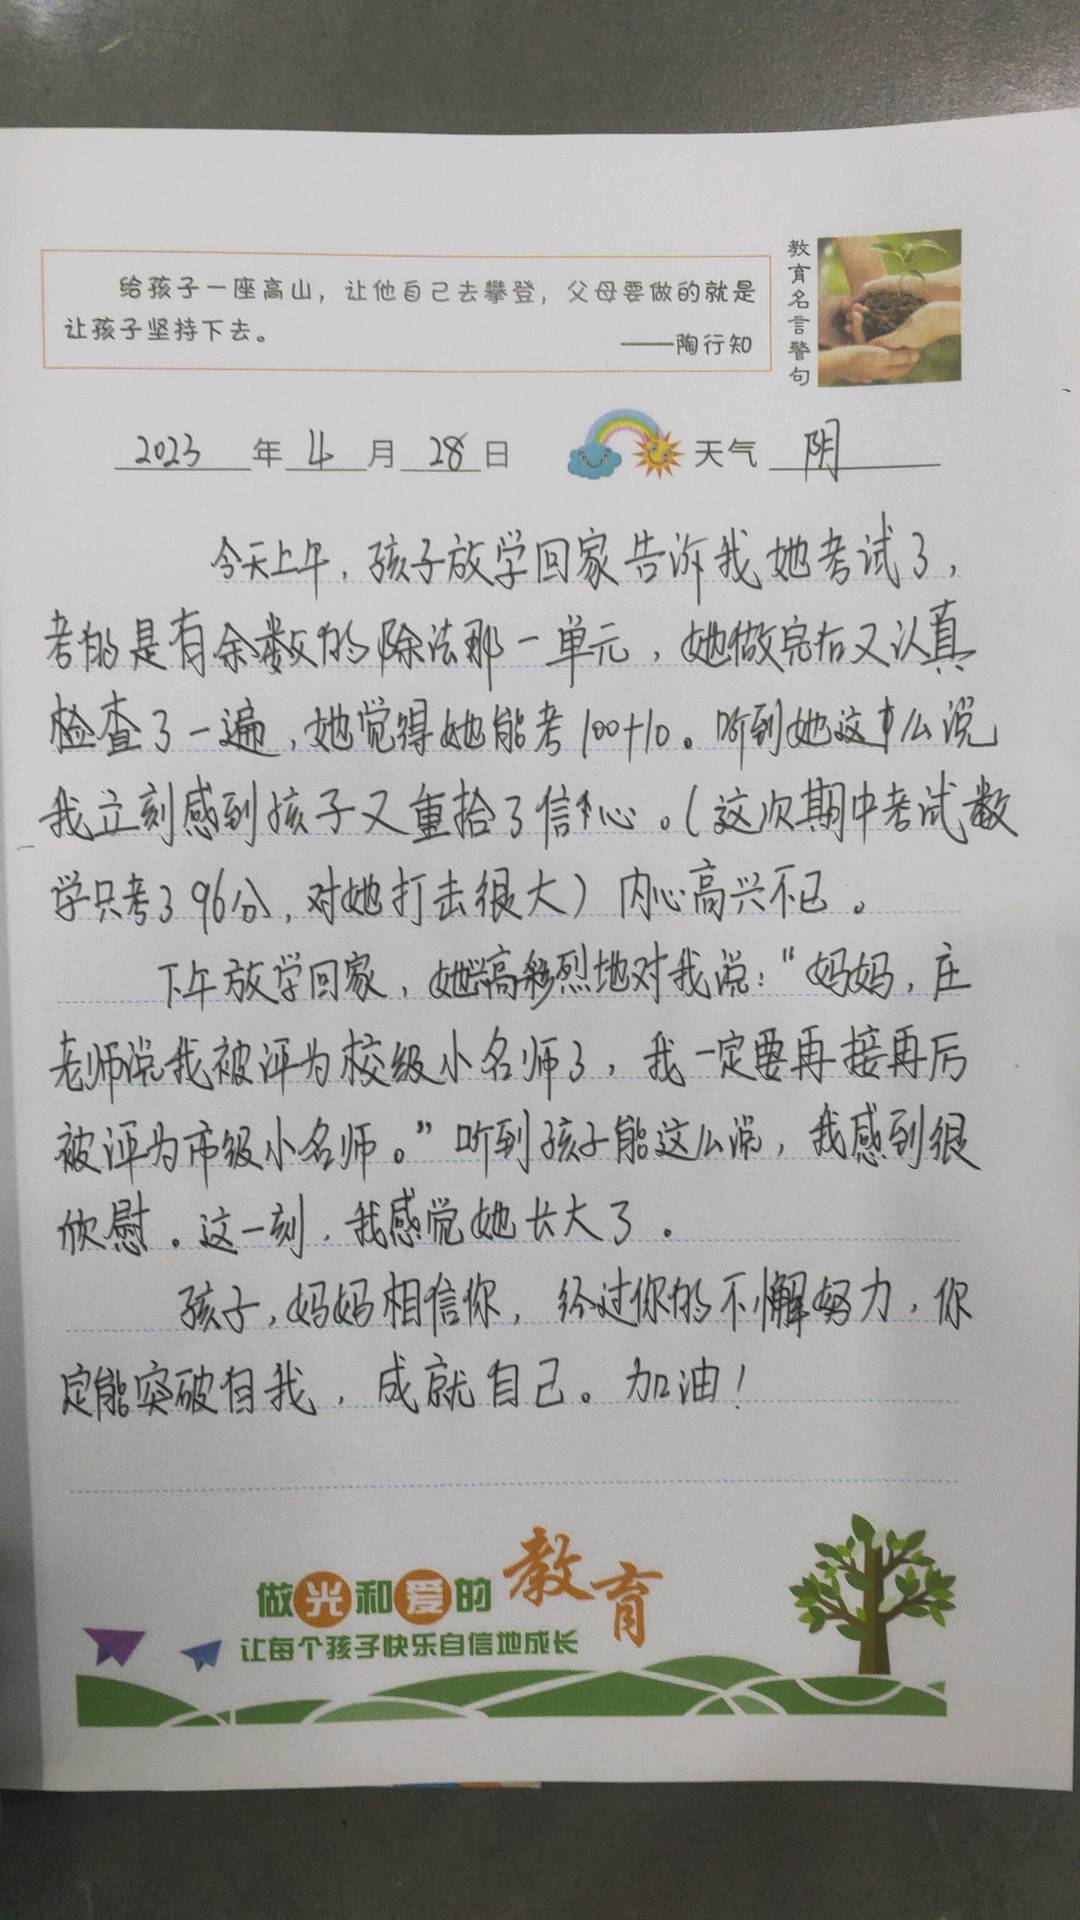 给孩子一座高山，让他自己去攀登，父母要做的就是
让孩子坚持下去。
——陶行知
教育名言警句
2023年4月28日 天气 阴
今天上午，孩子放学回家告诉我她考试了，
考的是有余数的除法那一单元，她做完后又认真
检查了一遍，她觉得她能考100+10。听到她这么说
我立刻感到孩子又重拾了信心。（这次期中考试数
学只考了96分，对她打击很大）内心高兴不已。
下午放学回家，她兴高彩烈地对我说：“妈妈，庄
老师说我被评为校级小名师了，我一定要再接再厉
被评为市级小名师。”听到孩子能这么说，我感到很
欣慰。这一刻，我感觉她长大了。
孩子，妈妈相信你，经过你的不懈努力，你
定能突破自我，成就自己。加油！
做光和爱的教育
让每个孩子快乐自信地成长